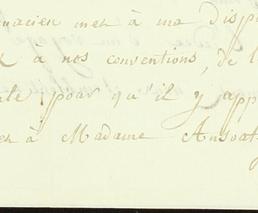 macien met à ma disp
à nos conventions, de l
le pour qu'il y app
à Madame